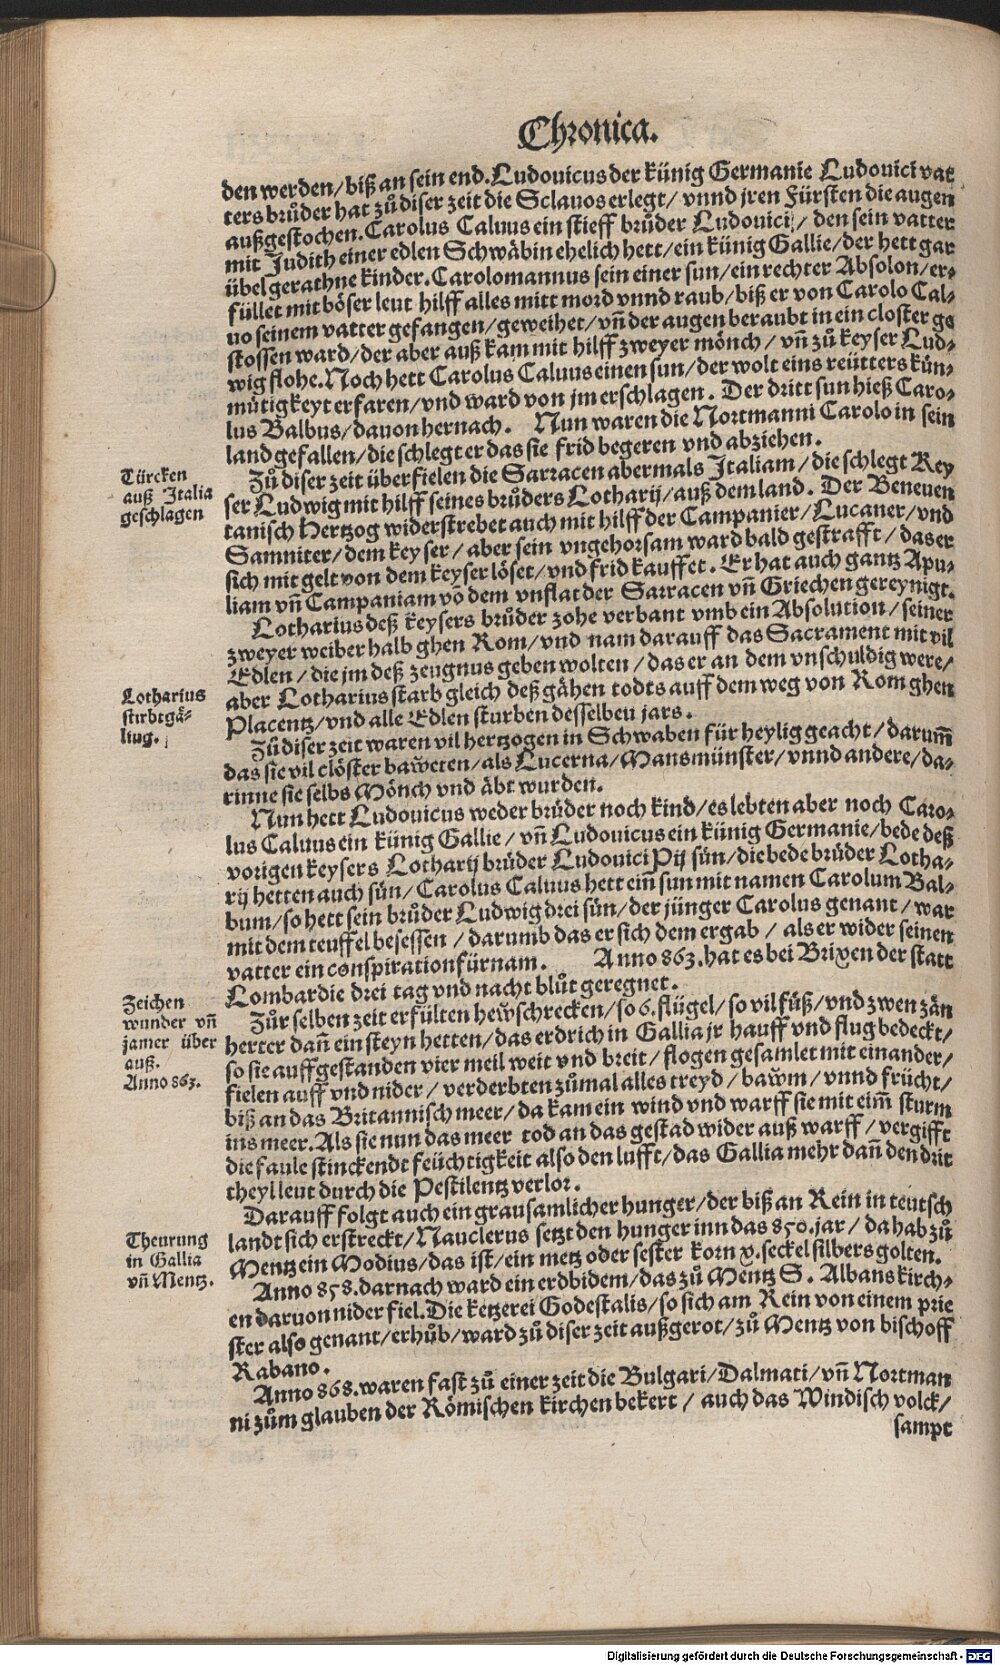 Chronica.
den werden/ biß an sein end. Ludouicus der künig Germanie Ludouici vat
ters brůder hat zů diser zeit die Sclauos erlegt/ vnnd jren Fürsten die augen
außgestochen. Carolus Caluus ein stieff brůder Ludouici/ den sein vatter
mit Judith einer edlen Schwäbin ehelich hett/ ein künig Gallie/ der hett gar
übel gerathne kinder. Carolomannus sein einer sun/ ein rechter Absolon/ er⸗
füllet mit böser leut hilff alles mitt mord vnnd raub/ biß er von Carolo Cal⸗
uo seinem vatter gefangen/ geweihet/ vñ der augen beraubt in ein closter ge
stossen ward/ der aber auß kam mit hilff zweyer mönch/ vñ zů keyser Lud⸗
wig flohe. Noch hett Carolus Caluus einen sun/ der wolt eins reütters kün⸗
mütigkeyt erfaren/ vnd ward von jm erschlagen. Der dritt sun hieß Caro⸗
lus Balbus/ dauon hernach. Nun waren die Nortmanni Carolo in sein
land gefallen/ die schlegt er das sie frid begeren vnd abziehen.
Türcken
auß Italia
geschlagen
Zů diser zeit überfielen die Sarracen abermals Italiam/ die schlegt Key
ser Ludwig mit hilff seines brůders Lotharij/ auß dem land. Der Beneuen
tanisch Hertzog widerstrebet auch mit hilff der Campanier/ Lucaner/ vnd
Samniter/ dem keyser/ aber sein vngehorsam ward bald gestrafft/ das er
sich mit gelt von dem keyser löset/ vnd frid kauffet. Er hat auch gantz Apu⸗
liam vñ Campaniam võ dem vnflat der Sarracen vñ Griechen gereynigt.
Lotharius deß keysers brůder zohe verbant vmb ein Absolution/ seiner
zweyer weiber halb ghen Rom/ vnd nam darauff das Sacrament mit vil
Edlen/ die jm deß zeugnus geben wolten/ das er an dem vnschuldig were/
Lotharius
stirbt gä⸗
ling.
aber Lotharius starb gleich deß gähen todts auff dem weg von Rom ghen
Placentz/ vnd alle Edlen sturben desselben jars.
Zů diser zeit waren vil hertzogen in Schwaben für heylig geacht/ darum̃
das sie vil clöster baweten/ als Lucerna/ Mansmünster/ vnnd andere/ da⸗
rinne sie selbs Mönch vnd äbt wurden.
Nun hett Ludouicus weder brůder noch kind/ es lebten aber noch Caro⸗
lus Caluus ein künig Gallie/ vñ Ludouicus ein künig Germanie/ bede deß
vorigen keysers Lotharij brůder Ludouici Pij sün/ die bede brůder Lotha⸗
rij hetten auch sün/ Carolus Caluus hett eiñ sun mit namen Carolum Bal⸗
bum/ so hett sein brůder Ludwig drei sün/ der jünger Carolus genant/ war
mit dem teuffel besessen/ darumb das er sich dem ergab/ als er wider seinen
vatter ein conspiration fürnam. Anno 863. hat es bei Brixen der statt
Lombardie drei tag vnd nacht blůt geregnet.
Zeichen
wunder vñ
jamer über
auß.
Anno 863.
Zůr selben zeit erfülten hewschrecken/ so 6. flügel/ so vil füß/ vnd zwen zän
herter dañ ein steyn hetten/ das erdrich in Gallia jr hauff vnd flug bedeckt/
so sie auff gestanden vier meil weit vnd breit/ flogen gesamlet mit einander/
fielen auff vnd nider/ verderbten zůmal alles treyd/ bawm/ vnnd frücht/
biß an das Britannisch meer/ da kam ein wind vnd warff sie mit eim̃ sturm
ins meer. Als sie nun das meer tod an das gestad wider auß warff/ vergifft
die faule stinckendt feüchtigkeit also den lufft/ das Gallia mehr dañ den drit
theyl leut durch die Pestilentz verlor.
Theurung
in Gallia
vñ Mentz.
Darauff folgt auch ein grausamlicher hunger/ der biß an Rein in teutsch
landt sich erstreckt/ Nauclerus setzt den hunger inn das 850. jar/ da hab zů
Mentz ein Modius/ das ist/ ein metz oder sester korn x. seckel silbers golten.
Anno 858. darnach ward ein erdbidem/ das zů Mentz S. Albans kirch⸗
en daruon nider fiel. Die ketzerei Godestalis/ so sich am Rein von einem prie
ster also genant/ erhůb/ ward zů diser zeit außgerot/ zů Mentz von bischoff
Rabano.
Anno 868. waren fast zů einer zeit die Bulgari/ Dalmati/ vñ Nortman
ni zům glauben der Römischen kirchen bekert/ auch das Windisch volck/
sampt
Digitalisierung gefördert durch die Deutsche Forschungsgemeinschaft - DFG